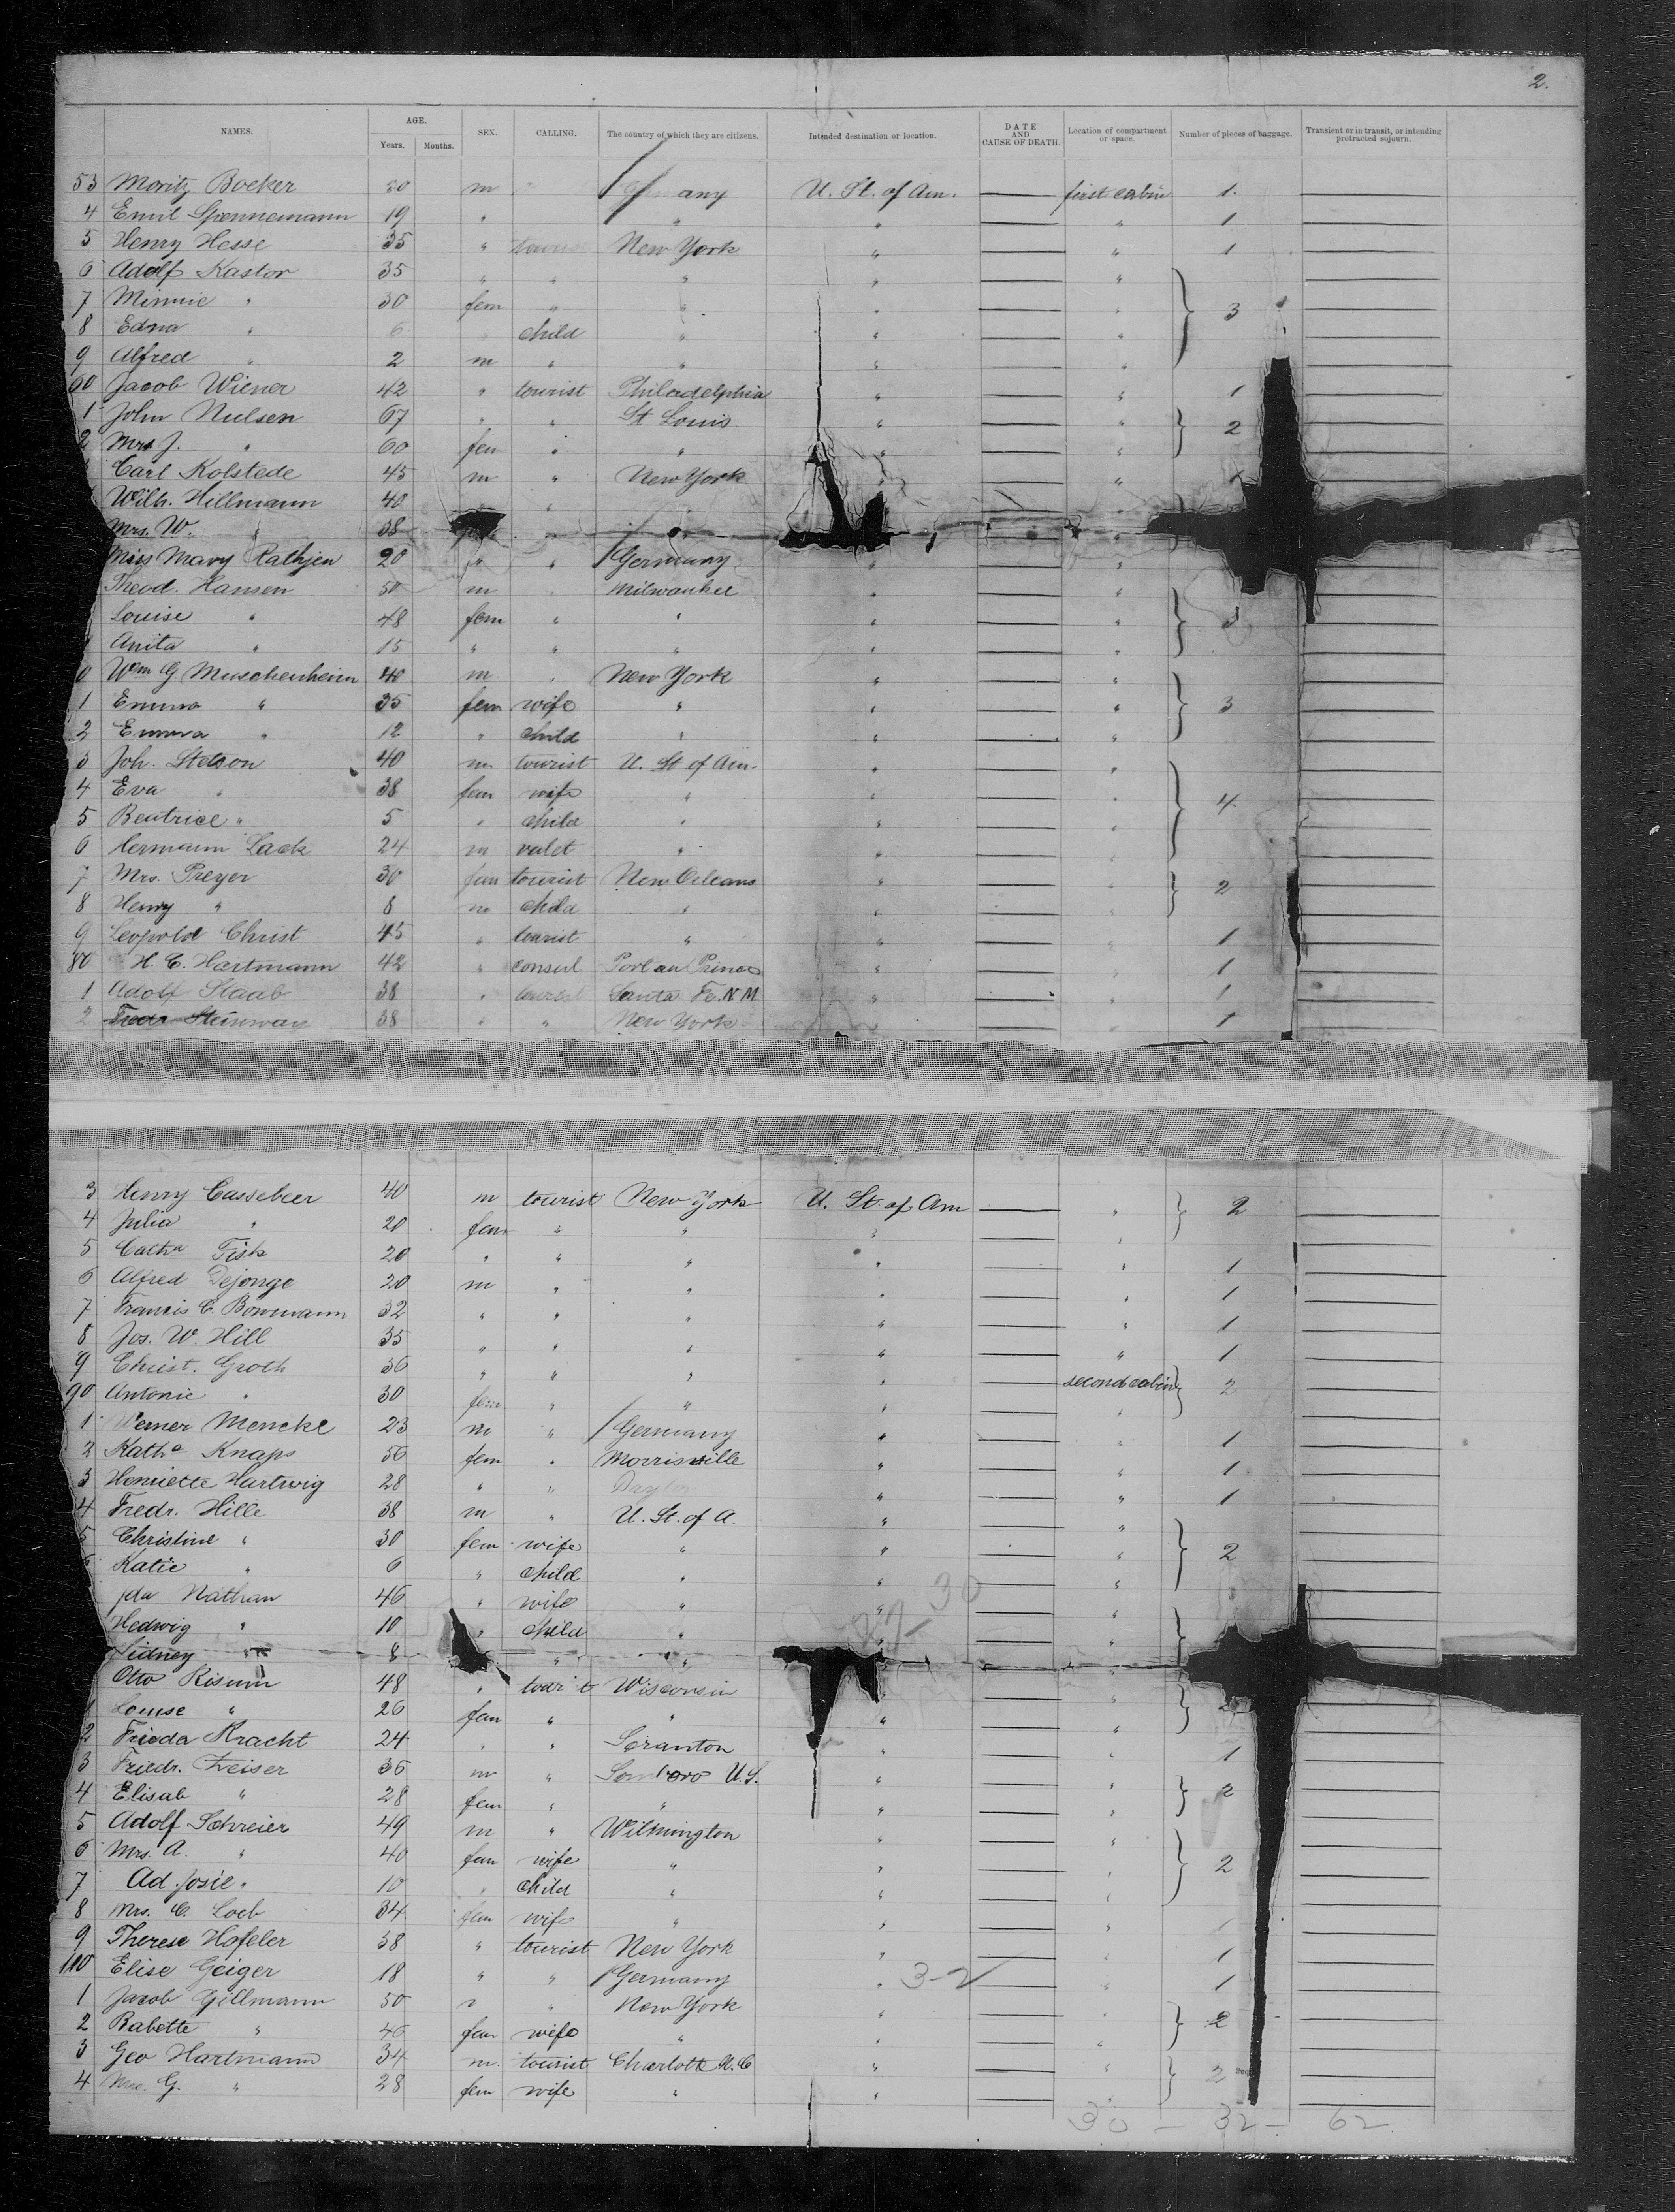 2.
NAMES. AGE. SEX. CALLING. The country of which they are citizens. Intended destination or location. DATE AND CAUSE OF DEATH. Location of compartment or space. Number of pieces of baggage. Transient or in transit, or intending protracted sojourn.
Years. Months.
53 Moritz Boeker 30 m any U. St. of Am. first cabin 1.
4 Emil 19 " " " " 1
5 Henry Hesse 35 " New York " " 1
6 Adolf Kastor 35 " " " " "
7 Minnie " 30 fem " " " " 3
8 Edna " 6 " child " " "
9 Alfred " 2 m " " " "
60 Jacob Wiener 42 " tourist Philadelphia " " 1
1 John Nulsen 67 " " St Louis " " 2
2 Mrs J. " 60 fem " " " "
Carl Kolstede 45 m " New York " " 1
Wilh. Hillmann 40 " " "
Mrs. W. " 38 " "
Miss Mary Rathjen 20 " " Germany " "
Theod. Hansen 50 m " Milwaukee " " 3
Louise " 48 fem " " " "
Anita " 15 " " " " "
0 Wm G. Muschenheim 40 m " New York " " 3
1 Emma " 35 fem wife " " "
2 Emma " 12 " child " " "
3 Joh. Stetson 40 m tourist U. St of Am. " " 4
4 Eva " 38 fem wife " " "
5 Beatrice " 5 " child " " "
6 Hermann Lack 24 m valet " " "
7 Mrs. Preyer 30 fem tourist New Orleans " " 2
8 Henry " 8 m child " " "
9 Leopold Christ 45 " tourist " " " 1
80 H. C. Hartmann 42 " consul Port au Prince " " 1
1 Adolf Staab 38 " tourist Santa Fe. N M. " " 1
2 Fredr Steinway 38 " " New York " " 1
3 Henry Cassebeer 40 m tourist New York U. St. of Am " 2
4 Julia " 20 fem " " " "
5 Catha Fisk 20 " " " " " 1
6 Alfred Dejonge 20 m " " " " 1
7 Francis C. Bowmann 32 " " " " " 1
8 Jos. W. Hill 35 " " " " " 1
9 Christ. Groth 36 " " " " second cabin 2
90 Antonie " 30 fem " " " "
1 Werner Mencke 23 m " Germany " " 1
2 Kathe Knaps 56 fem " Morrisville " " 1
3 Henriette Hartwig 28 " " " " 1
4 Fredr. Hille 38 m " U. St. of A. " " 2
5 Christine " 30 fem wife " " "
6 Katie " 6 " child " " "
Ida Nathan 46 " wife " " "
Hedwig " 10 " child " " "
Sidney " 8 " " " "
Otto Risum 48 " Wisconsin " "
1 Louise " 26 fem " " " "
2 Frieda Kracht 24 " " Scranton " " 1
3 Friedr. Zeiser 36 m " U.S. " " 2
4 Elisab " 28 fem " " " "
5 Adolf Schreier 49 m " Wilmington " " 2
6 Mrs. A. " 40 fem wife " " "
7 Ad. Josie " 10 " child " " "
8 Mrs. C. Loeb 34 fem wife " " " 1
9 Therese Hofeler 38 " tourist New York " " 1
110 Elise Geiger 18 " " Germany " 3-2 " 1
1 Jacob Gillmann 50 " New York " " 2
2 Babette " 46 fem wife " " "
3 Geo Hartmann 34 m. tourist Charlotte N. C " " 2
4 Mrs. G. " 28 fem wife " " "
30 - 32 - 62